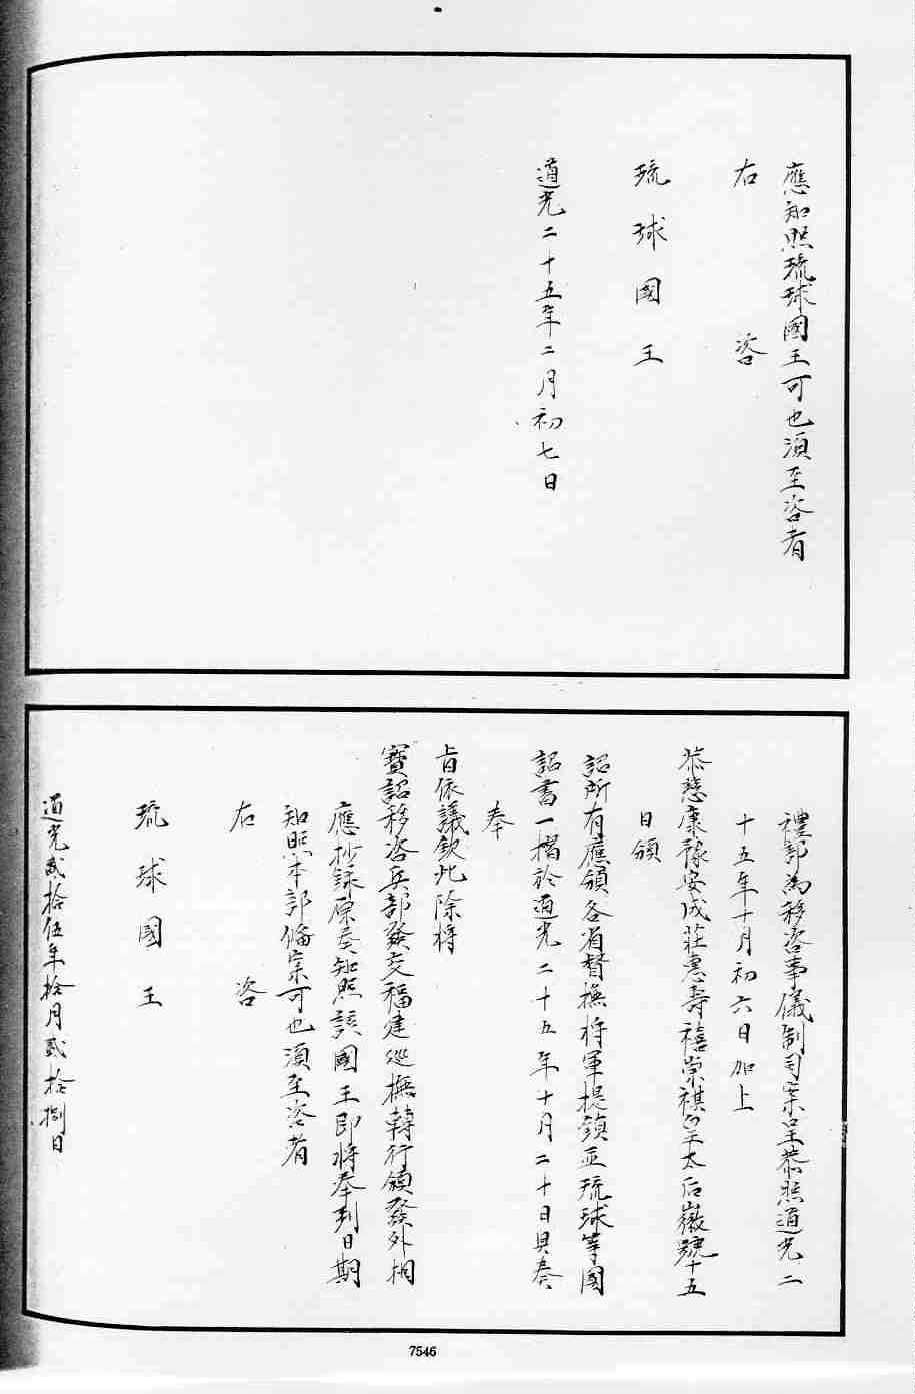 應知照琉球國王可也須至咨者
右咨
琉球國王
道光二十五年二月初七日
禮部為移咨事儀制司案呈恭照道光二
十五年十月初六日加上
恭慈康豫安成莊惠壽禧崇祺皇太后徽號十五
日頒
詔所有應頒各省督撫將軍提鎮並琉球等國
詔書一摺於道光二十五年十月二十日具奏
奉
旨依議欽此除將
寶詔移咨兵部發交福建巡撫轉行頒發外相
應抄錄原奏知照該國王即將奉到日期
知照本部備案可也須至咨者
右咨
琉球國王
道光貳拾伍年拾月貳拾捌日
7546